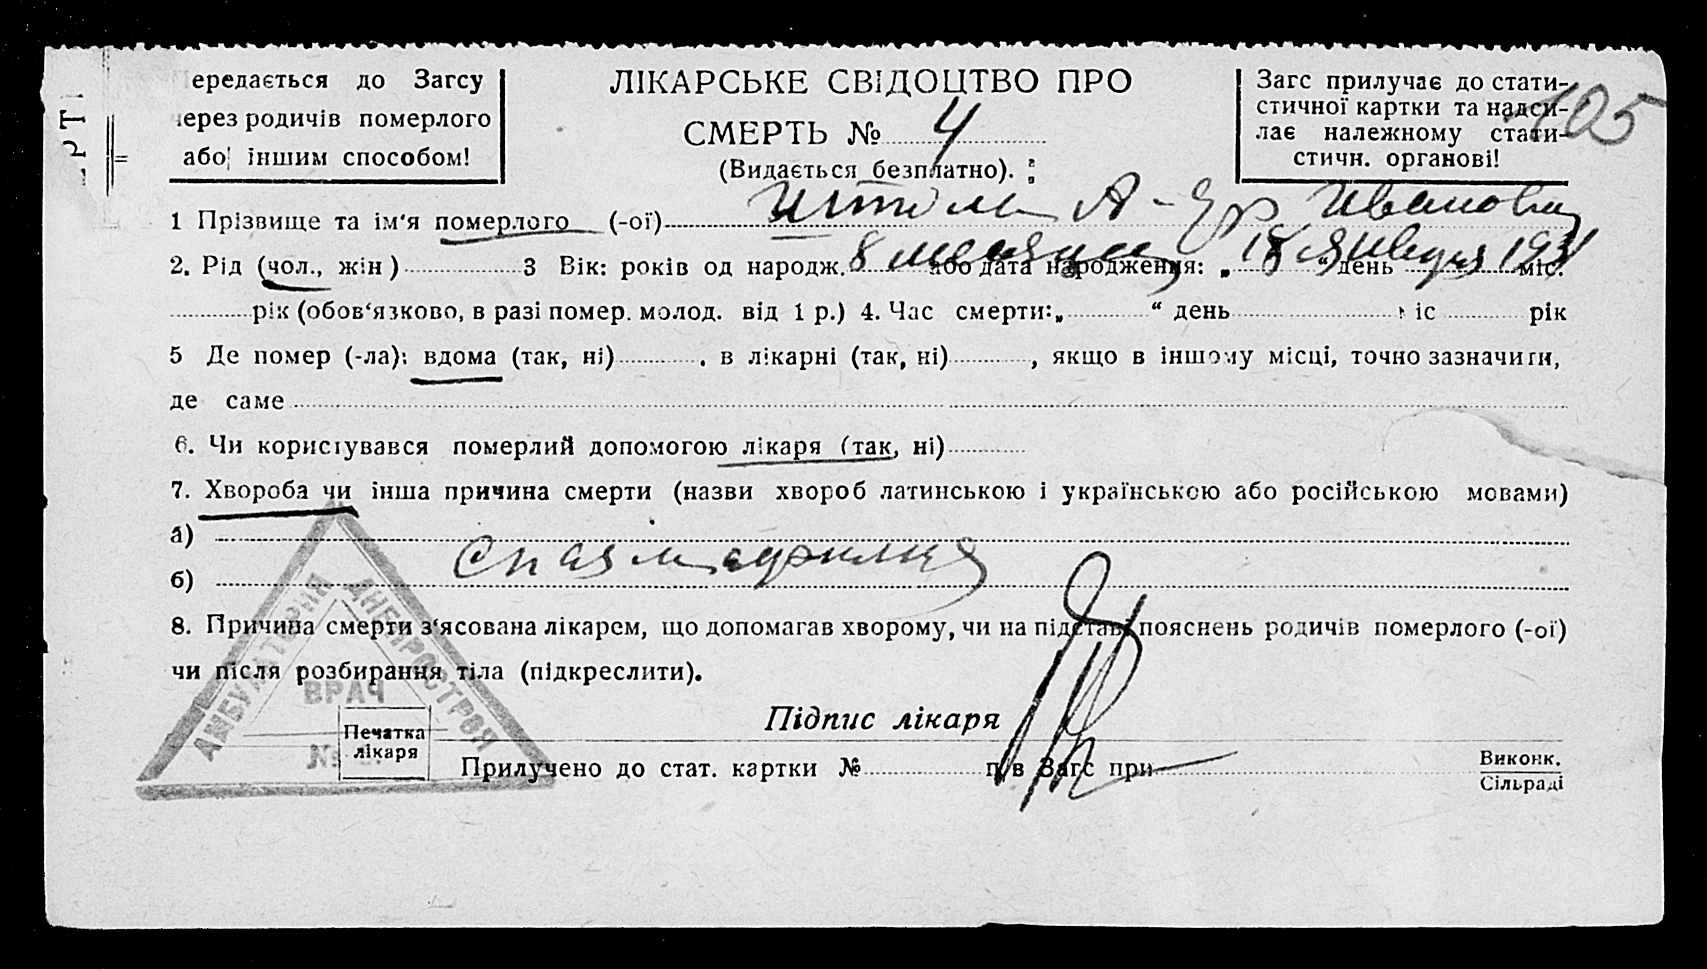 ередається до Загсу
ерез родичів померлого
або іншим способом!
ЛІКАРСЬКЕ СВІДОЦТВО ПРО
СМЕРТЬ № 4
(Видається безплатно).
Загс прилучає до стати-
стичної картки та надси-
лає належному стати-
стичн. органові!
105
1 Прізвище та ім'я померлого (-ої) Иванович
2. Рід (чол., жін) 3 Вік: років од народж. 8 месяцев або дата народження: „ 18 “ день января 1931 міс.
рік (обов'язково, в разі помер. молод. від 1 р.) 4. Час смерти: „ “ день іс рік
5 Де помер (-ла): вдома (так, ні) , в лікарні (так, ні) , якщо в іншому місці, точно зазначити,
де саме
6. Чи користувався померлий допомогою лікаря (так, ні)
7. Хвороба чи інша причина смерти (назви хвороб латинською і українською або російською мовами)
а)
спазмофилия
б)
8. Причина смерти з'ясована лікарем, що допомагав хворому, чи на підставі пояснень родичів померлого (-ої)
чи після розбирання тіла (підкреслити).
АМБУЛАТОРИЯ ДНЕПРОСТРОЯ
ВРАЧ
№
Печатка
лікаря
Підпис лікаря
Прилучено до стат. картки № п/в Загс при
Виконк.
Сільраді